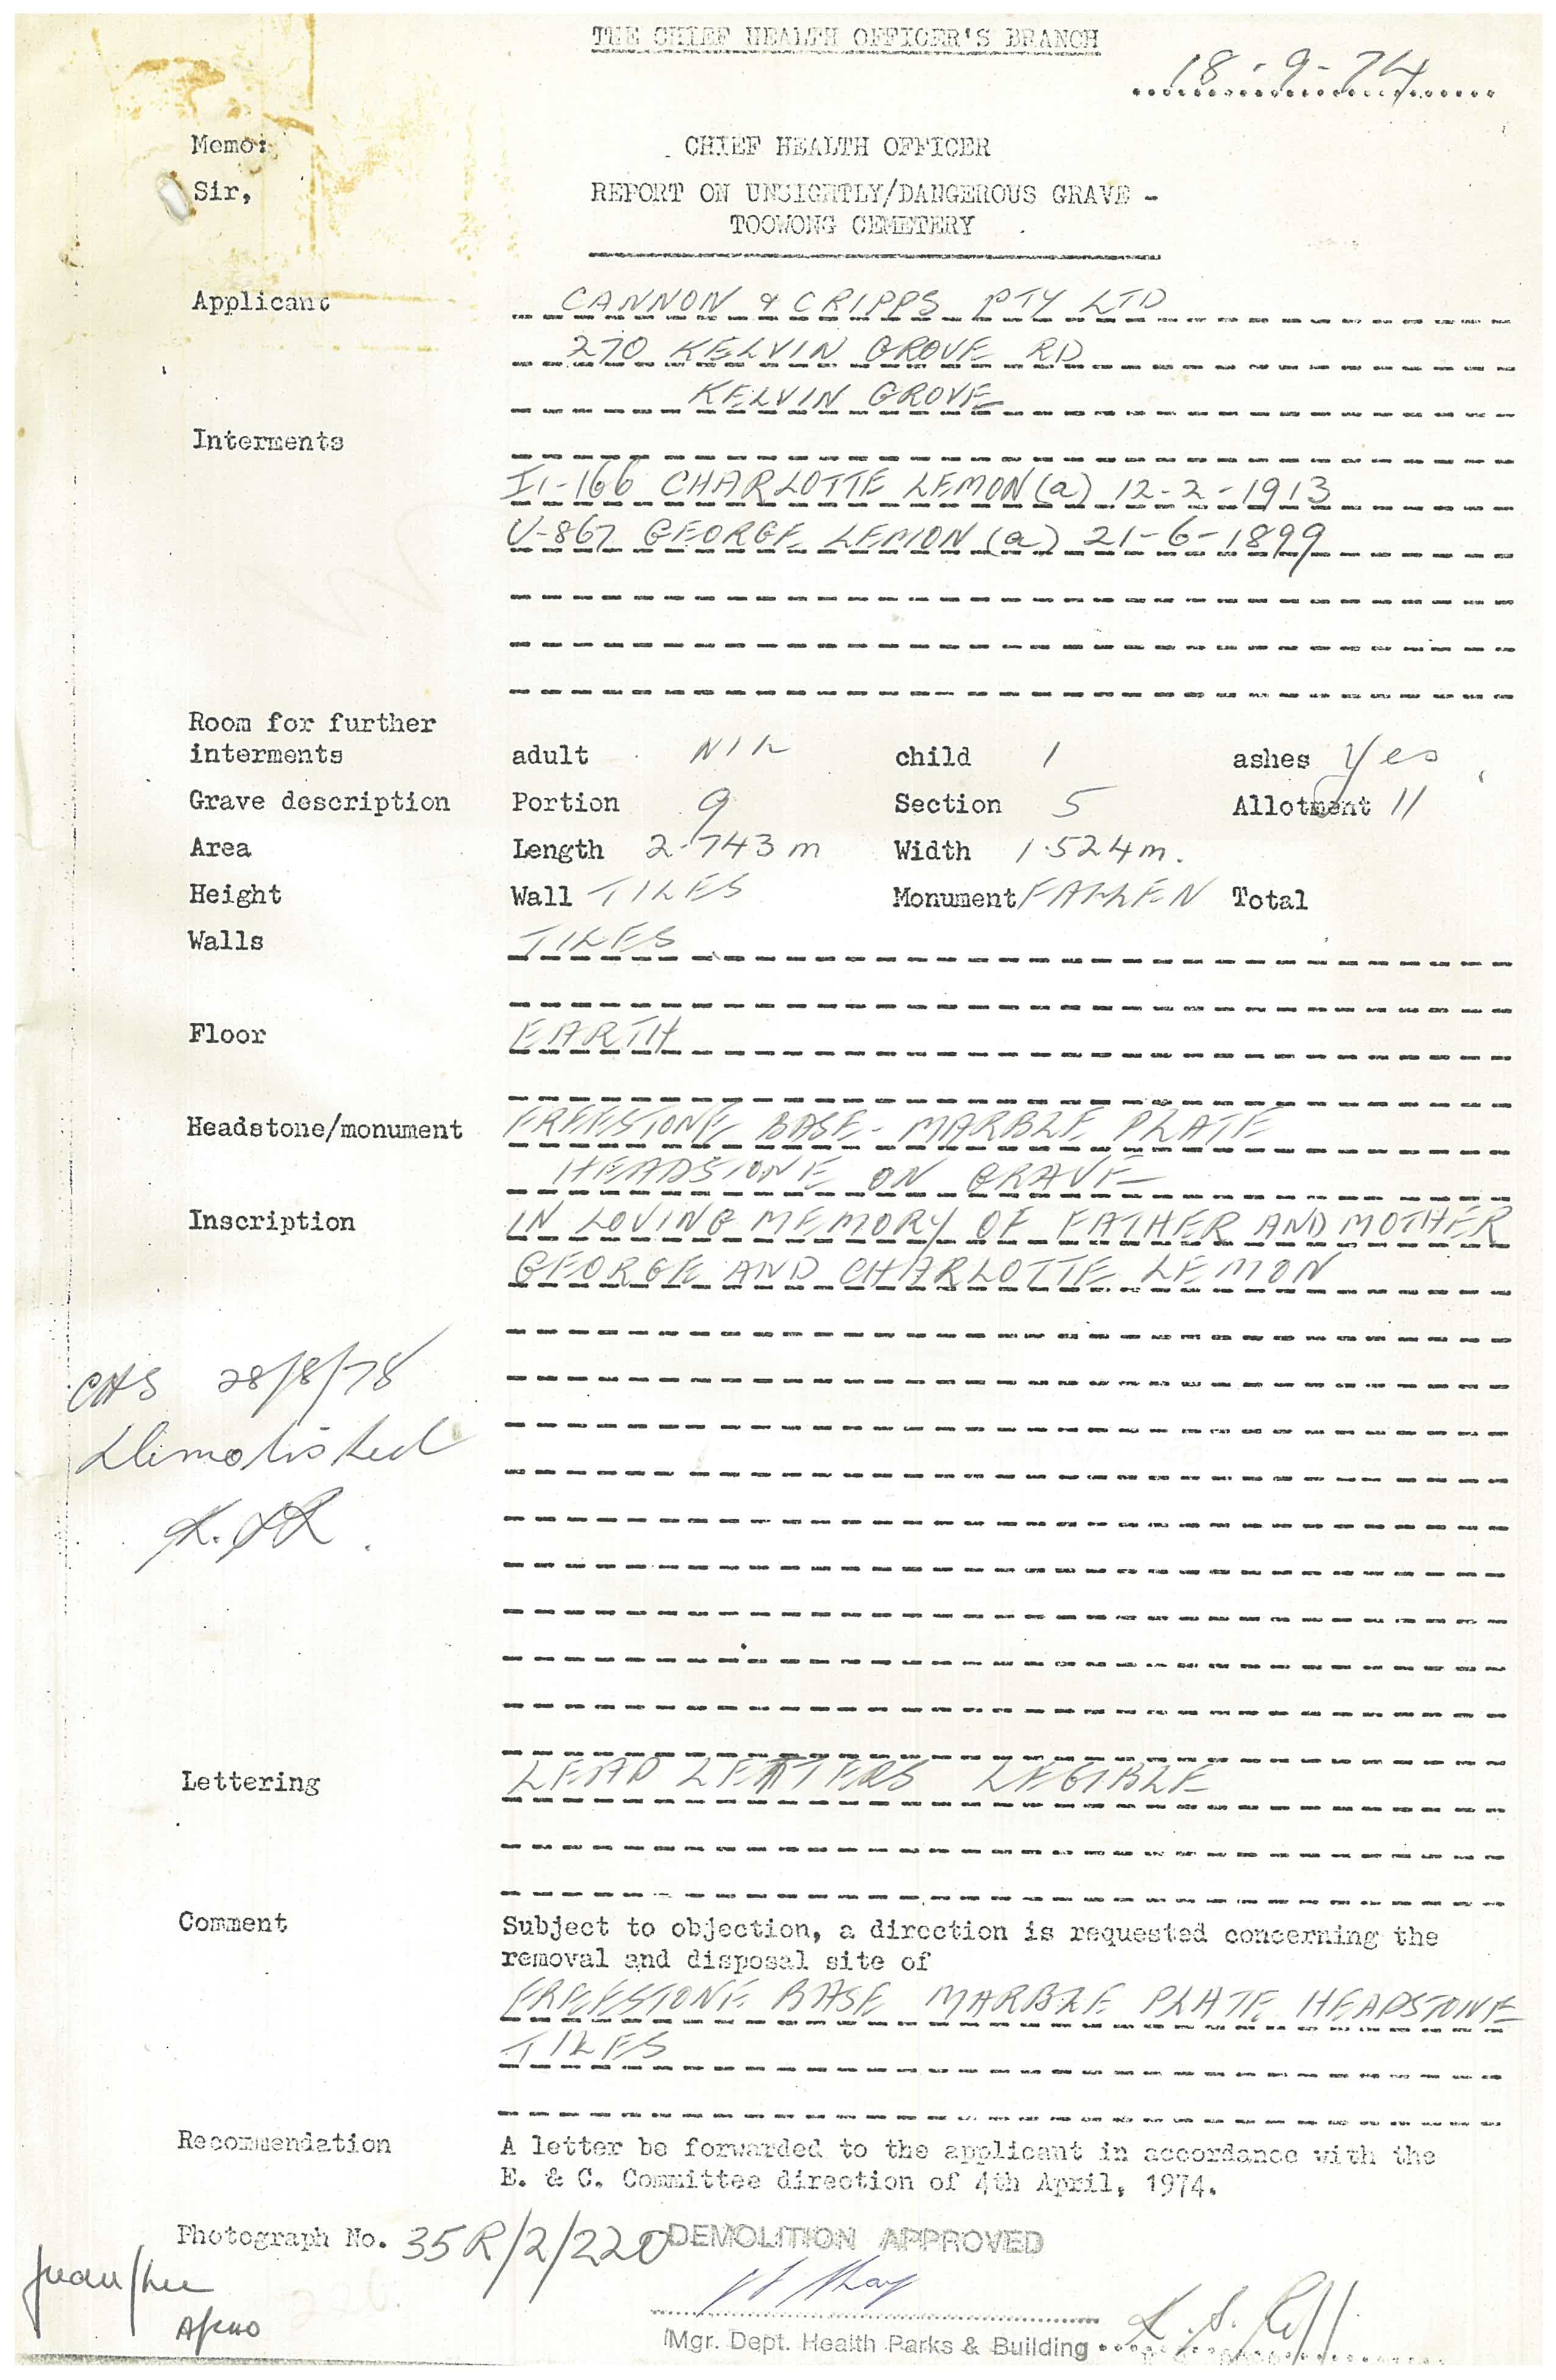 THE CHIEF HEALTH OFFICER'S BRANCH
18-9-74
Memo: CHIEF HEALTH OFFICER
Sir, REPORT ON UNSIGHTLY/DANGEROUS GRAVE -
TOOWONG CEMETERY
Applicant CANNON & CRIPPS PTY LTD
270 KELVIN GROVE RD
KELVIN GROVE
Interments
I1-166 CHARLOTTE LEMON (a) 12-2-1913
U-867 GEORGE LEMON (a) 21-6-1899
Room for further
interments adult NIL child 1 ashes Yes
Grave description Portion 9 Section 5 Allotment 11
Area Length 2.743m Width 1.524m.
Height Wall TILES Monument FALLEN Total
Walls TILES
Floor EARTH
Headstone/monument FREESTONE BASE - MARBLE PLATE
HEADSTONE ON GRAVE
Inscription IN LOVING MEMORY OF FATHER AND MOTHER
GEORGE AND CHARLOTTE LEMON
28/8/78
Demolished
Lettering LEAD LETTERS LEGIBLE
Comment Subject to objection, a direction is requested concerning the
removal and disposal site of
FREESTONE BASE MARBLE PLATE HEADSTONE
TILES
Recommendation A letter be forwarded to the applicant in accordance with the
E. & C. Committee direction of 4th April, 1974.
Photograph No. 35R/2/220 DEMOLITION APPROVED
Mgr. Dept. Health Parks & Building